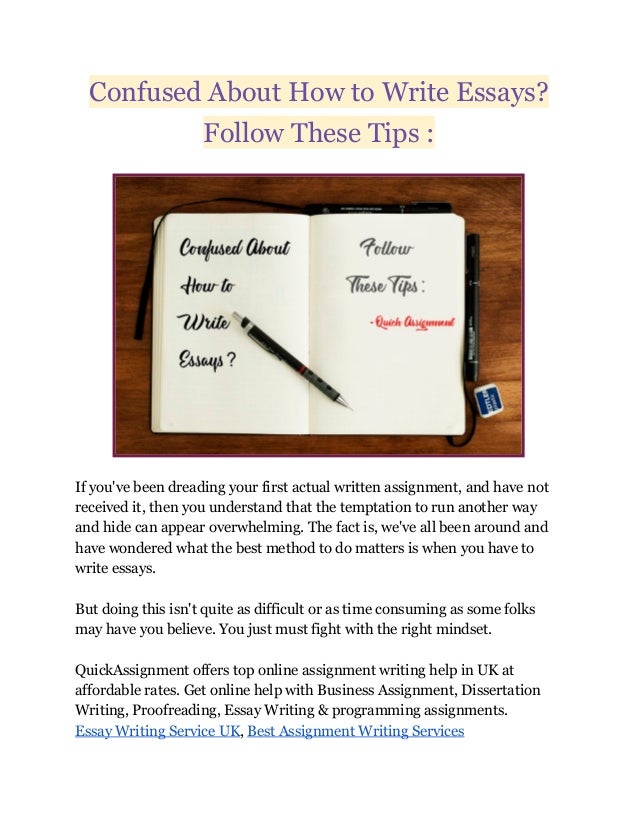 Confused About How to Write Essays?
Follow These Tips :
Confused About
How to
Write
Essays ?
Follow
These Tips :
- Quick Assignment
If you've been dreading your first actual written assignment, and have not
received it, then you understand that the temptation to run another way
and hide can appear overwhelming. The fact is, we've all been around and
have wondered what the best method to do matters is when you have to
write essays.
But doing this isn't quite as difficult or as time consuming as some folks
may have you believe. You just must fight with the right mindset.
QuickAssignment offers top online assignment writing help in UK at
affordable rates. Get online help with Business Assignment, Dissertation
Writing, Proofreading, Essay Writing & programming assignments.
Essay Writing Service UK, Best Assignment Writing Services